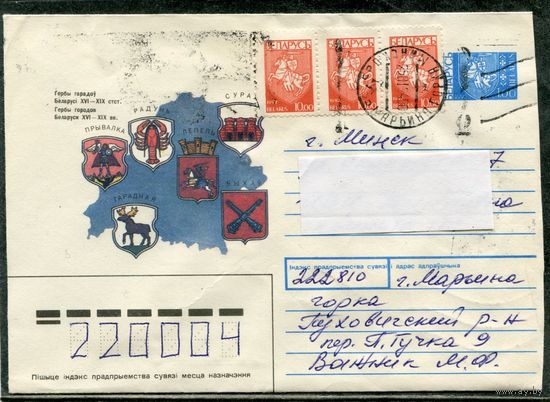 Гербы гарадоў
Беларусі XVI – XIX стст.
Гербы городов
Беларуси XVI – XIX вв.
ПРЫВАЛКА
РАДУНЬ
СУРАЖ
ЛЕПЕЛЬ
ГАРАДНАЯ
БЫХАЎ
БЕЛАРУСЬ
BELARUS
10.00
БЕЛАРУСЬ
BELARUS
10.00
БЕЛАРУСЬ
BELARUS
БЕЛАРУСЬ
г. Минск
7
Індэкс прадпрыемства сувязі і адрас адпраўшчыка
222810 г. Марьина
горка
Пуховичский р-н
пер. П. Гучка 9
Важник М.Ф.
220004
Пішыце індэкс прадпрыемства сувязі месца назначэння
www.ay.by